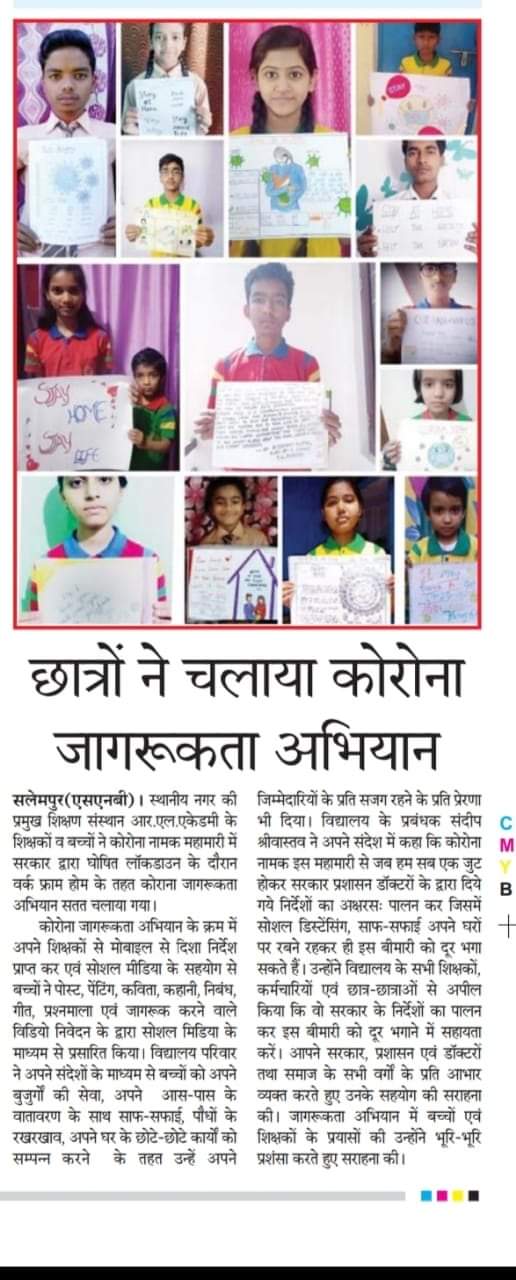 STAY
HOME
STAY
छात्रों ने चलाया कोरोना
जागरूकता अभियान
सलेमपुर(एसएनबी)। स्थानीय नगर की
प्रमुख शिक्षण संस्थान आर.एल.एकेडमी के
शिक्षकों व बच्चों ने कोरोना नामक महामारी में
सरकार द्वारा घोषित लॉकडाउन के दौरान
वर्क फ्राम होम के तहत कोराना जागरूकता
अभियान सतत चलाया गया।
कोरोना जागरूकता अभियान के क्रम में
अपने शिक्षकों से मोबाइल से दिशा निर्देश
प्राप्त कर एवं सोशल मीडिया के सहयोग से
बच्चों ने पोस्ट, पेंटिंग, कविता, कहानी, निबंध,
गीत, प्रश्नमाला एवं जागरूक करने वाले
विडियो निवेदन के द्वारा सोशल मिडिया के
माध्यम से प्रसारित किया। विद्यालय परिवार
ने अपने संदेशों के माध्यम से बच्चों को अपने
बुजुर्गों की सेवा, अपने आस-पास के
वातावरण के साथ साफ-सफाई, पौधों के
रखरखाव, अपने घर के छोटे-छोटे कार्यों को
सम्पन्न करने के तहत उन्हें अपने
जिम्मेदारियों के प्रति सजग रहने के प्रति प्रेरणा
भी दिया। विद्यालय के प्रबंधक संदीप
श्रीवास्तव ने अपने संदेश में कहा कि कोरोना
नामक इस महामारी से जब हम सब एक जुट
होकर सरकार प्रशासन डॉक्टरों के द्वारा दिये
गये निर्देशों का अक्षरसः पालन कर जिसमें
सोशल डिस्टेंसिंग, साफ-सफाई अपने घरों
पर रबने रहकर ही इस बीमारी को दूर भगा
सकते हैं। उन्होंने विद्यालय के सभी शिक्षकों,
कर्मचारियों एवं छात्र-छात्राओं से अपील
किया कि वो सरकार के निर्देशों का पालन
कर इस बीमारी को दूर भगाने में सहायता
करें। आपने सरकार, प्रशासन एवं डॉक्टरों
तथा समाज के सभी वर्गों के प्रति आभार
व्यक्त करते हुए उनके सहयोग की सराहना
की। जागरूकता अभियान में बच्चों एवं
शिक्षकों के प्रयासों की उन्होंने भूरि-भूरि
प्रशंसा करते हुए सराहना की।
C
M
Y
B